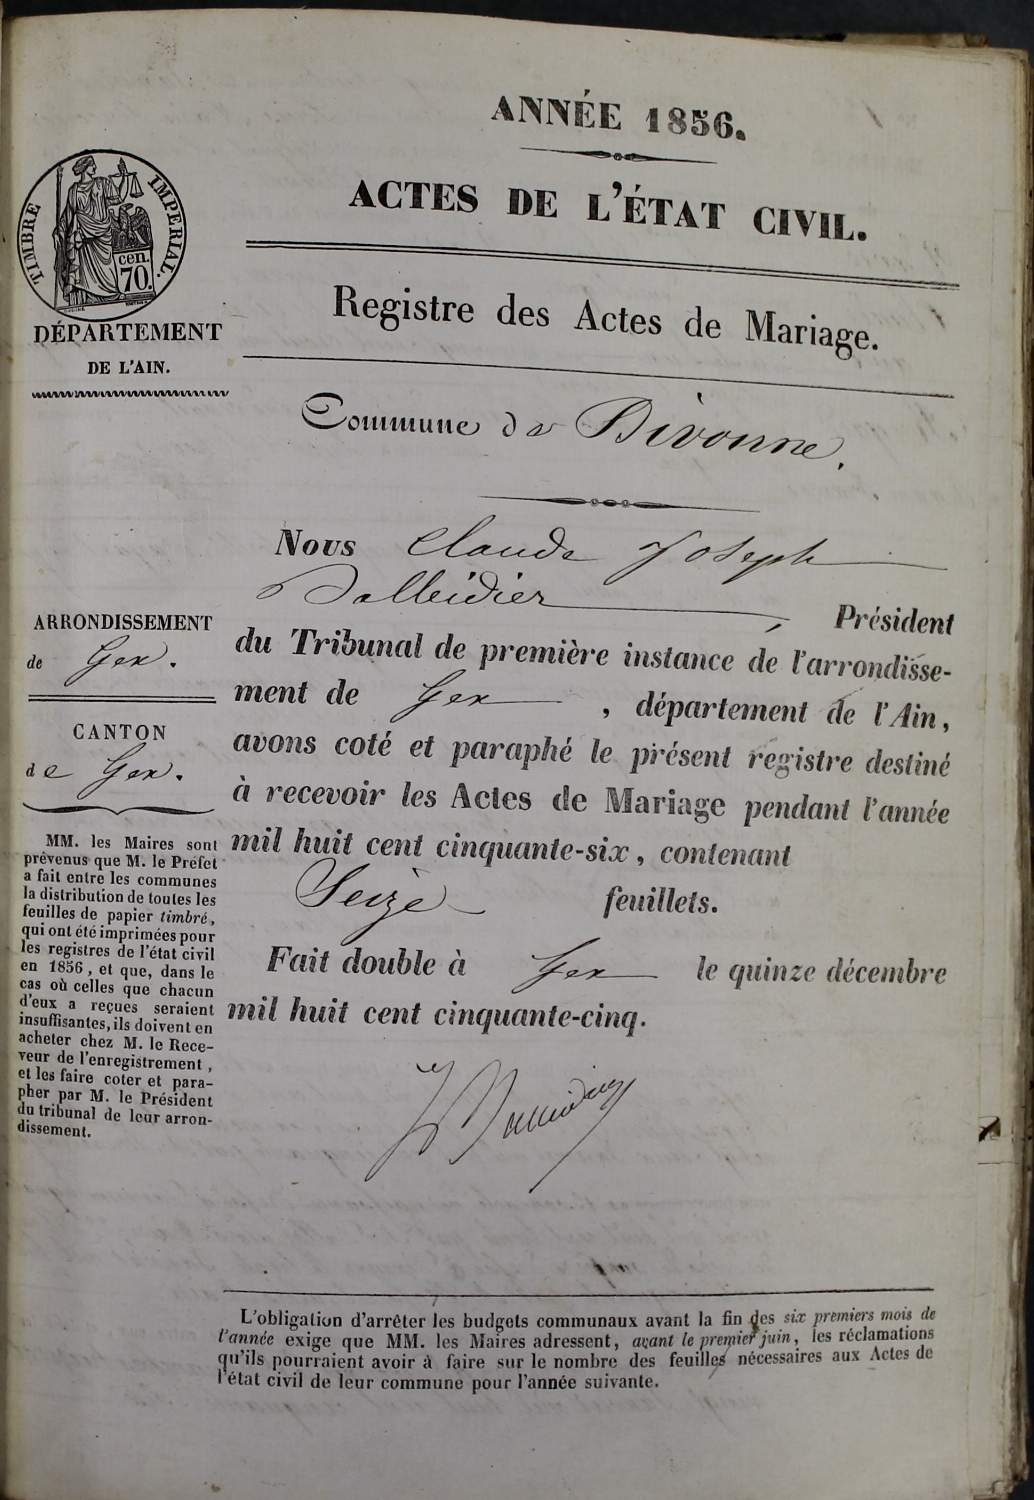 ANNÉE 1856.
ACTES DE L'ÉTAT CIVIL.
TIMBRE IMPERIAL.
cen.
70.
DÉPARTEMENT
DE L'AIN.
Registre des Actes de Mariage.
Commune de Divonne.
ARRONDISSEMENT
de Gex.
CANTON
de Gex.
MM. les Maires sont
prévenus que M. le Préfet
a fait entre les communes
la distribution de toutes les
feuilles de papier timbré,
qui ont été imprimées pour
les registres de l'état civil
en 1856, et que, dans le
cas où celles que chacun
d'eux a reçues seraient
insuffisantes, ils doivent en
acheter chez M. le Rece-
veur de l'enregistrement,
et les faire coter et para-
pher par M. le Président
du tribunal de leur arron-
dissement.
Nous Claude Joseph
Président
du Tribunal de première instance de l'arrondisse-
ment de Gex, département de l'Ain,
avons coté et paraphé le présent registre destiné
à recevoir les Actes de Mariage pendant l'année
mil huit cent cinquante-six, contenant
Seize feuillets.
Fait double à Gex le quinze décembre
mil huit cent cinquante-cinq.
L'obligation d'arrêter les budgets communaux avant la fin des six premiers mois de
l'année exige que MM. les Maires adressent, avant le premier juin, les réclamations
qu'ils pourraient avoir à faire sur le nombre des feuilles nécessaires aux Actes de
l'état civil de leur commune pour l'année suivante.